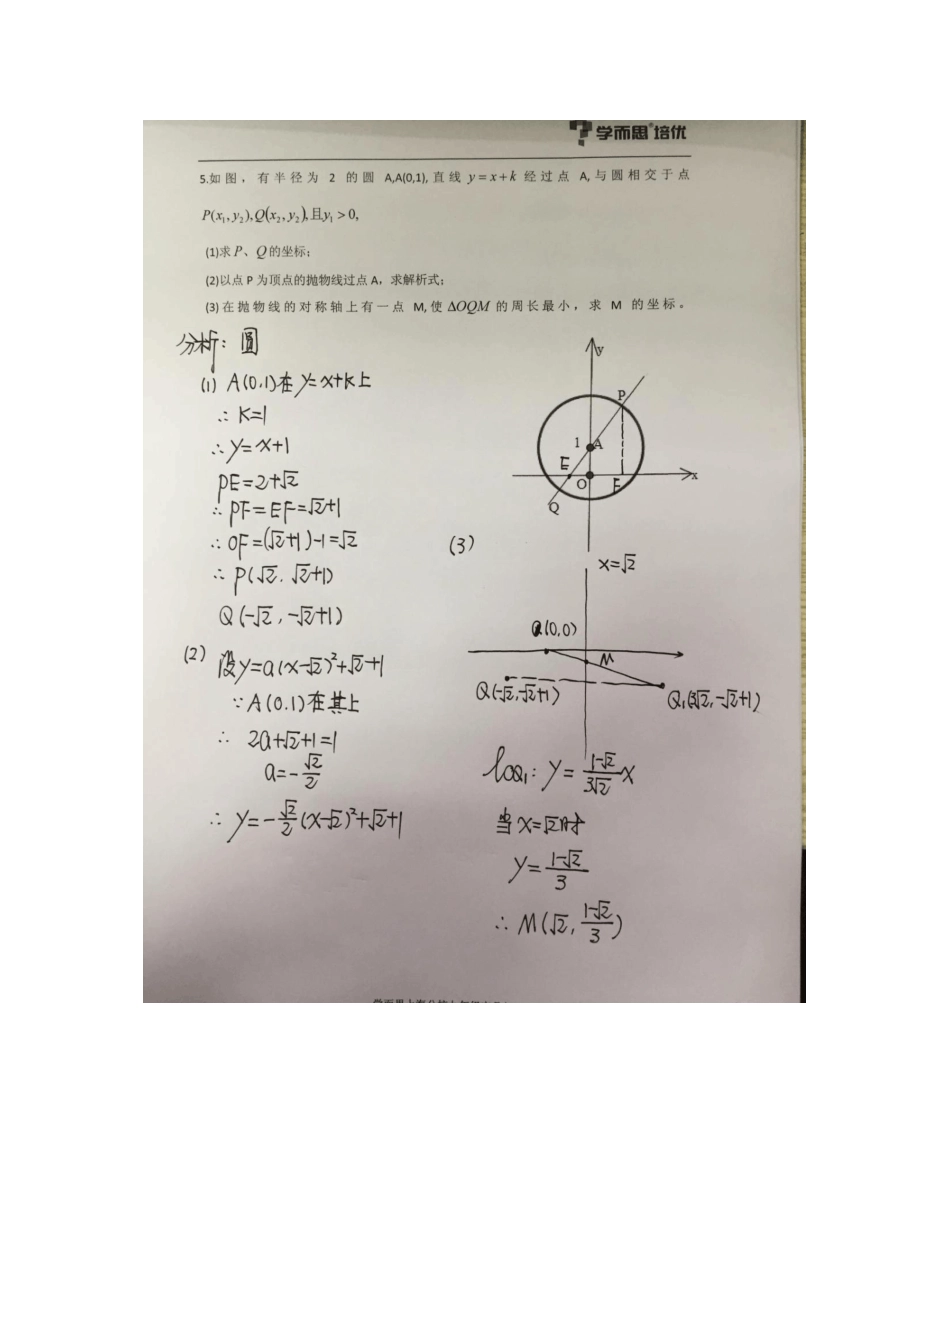 学而思培优
5.如图，有半径为 2 的圆 A,A(0,1),直线 y=x+k 经过点 A,与圆相交于点
P(x₁,y₂),Q(x₂,y₂),且y₁>0,
(1)求P、Q的坐标;
(2)以点 P 为顶点的抛物线过点 A，求解析式;
(3)在抛物线的对称轴上有一点 M,使 ΔOQM 的周长最小，求 M 的坐标。
分析：圆
(1) A(0,1)在y=x+k上
∴ k=1
∴ y=x+1
PE=2+√2
∴ PF=EF=√2+1
∴ OF=(√2+1)-1=√2
∴ P(√2, √2+1)
Q(-√2, -√2+1)
(2) 设y=a(x-√2)²+√2+1
∵ A(0.1)在其上
∴ 2a+√2+1=1
a=-√2/2
∴ y=-√2/2(x-√2)²+√2+1
y
P
1 A
E
O F x
Q
(3)
x=√2
(0,0)
M
Q(-√2,-√2+1)
Q₁(3√2,-√2+1)
lOQ₁: y=(1-√2)/(3√2)x
当x=√2时
y=(1-√2)/3
∴ M(√2, (1-√2)/3)